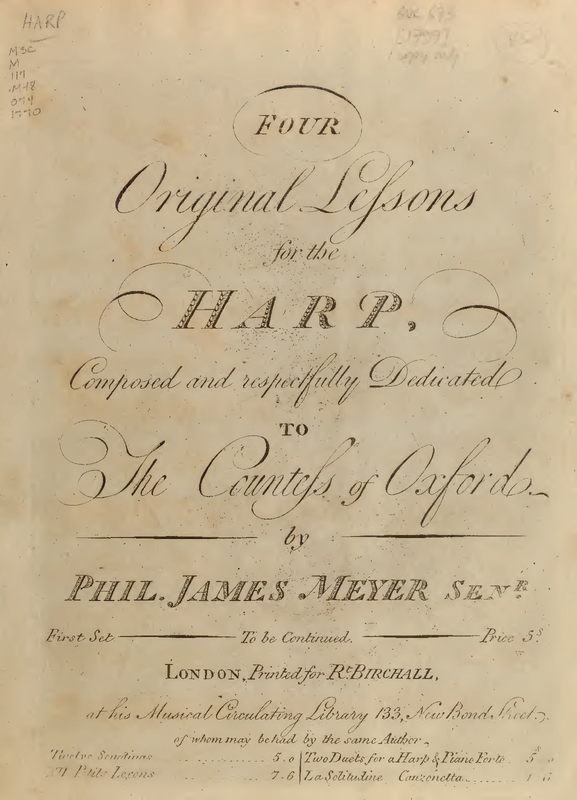 HARP
MSC
M
117
.M48
074
1770
[1799]
1 copy only
FOUR
Original Leſsons
for the
HARP,
Composed and respectfully Dedicated
TO
The Counteſs of Oxford
by
PHIL. JAMES MEYER SENR.
First Set To be Continued. Price 5s.
LONDON, Printed for Rt. BIRCHALL,
at his Musical Circulating Library 133, New Bond Street.
of whom may be had by the same Author
Twelve ........ 5.0 | Two Duets for a Harp & Piano Forte 5
XII Ptits ........ 7.6 | La Solitudine Canzonetta ........ 1 6